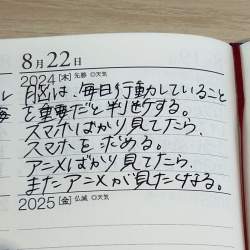 8月22日
2024 [木] 先勝 ○天気
脳は、毎日行動していること
を重要だと判断する。
スマホばかり見てたら、
スマホを求める。
アニメばかり見てたら、
またアニメが見たくなる。
2025 [金] 仏滅 ○天気